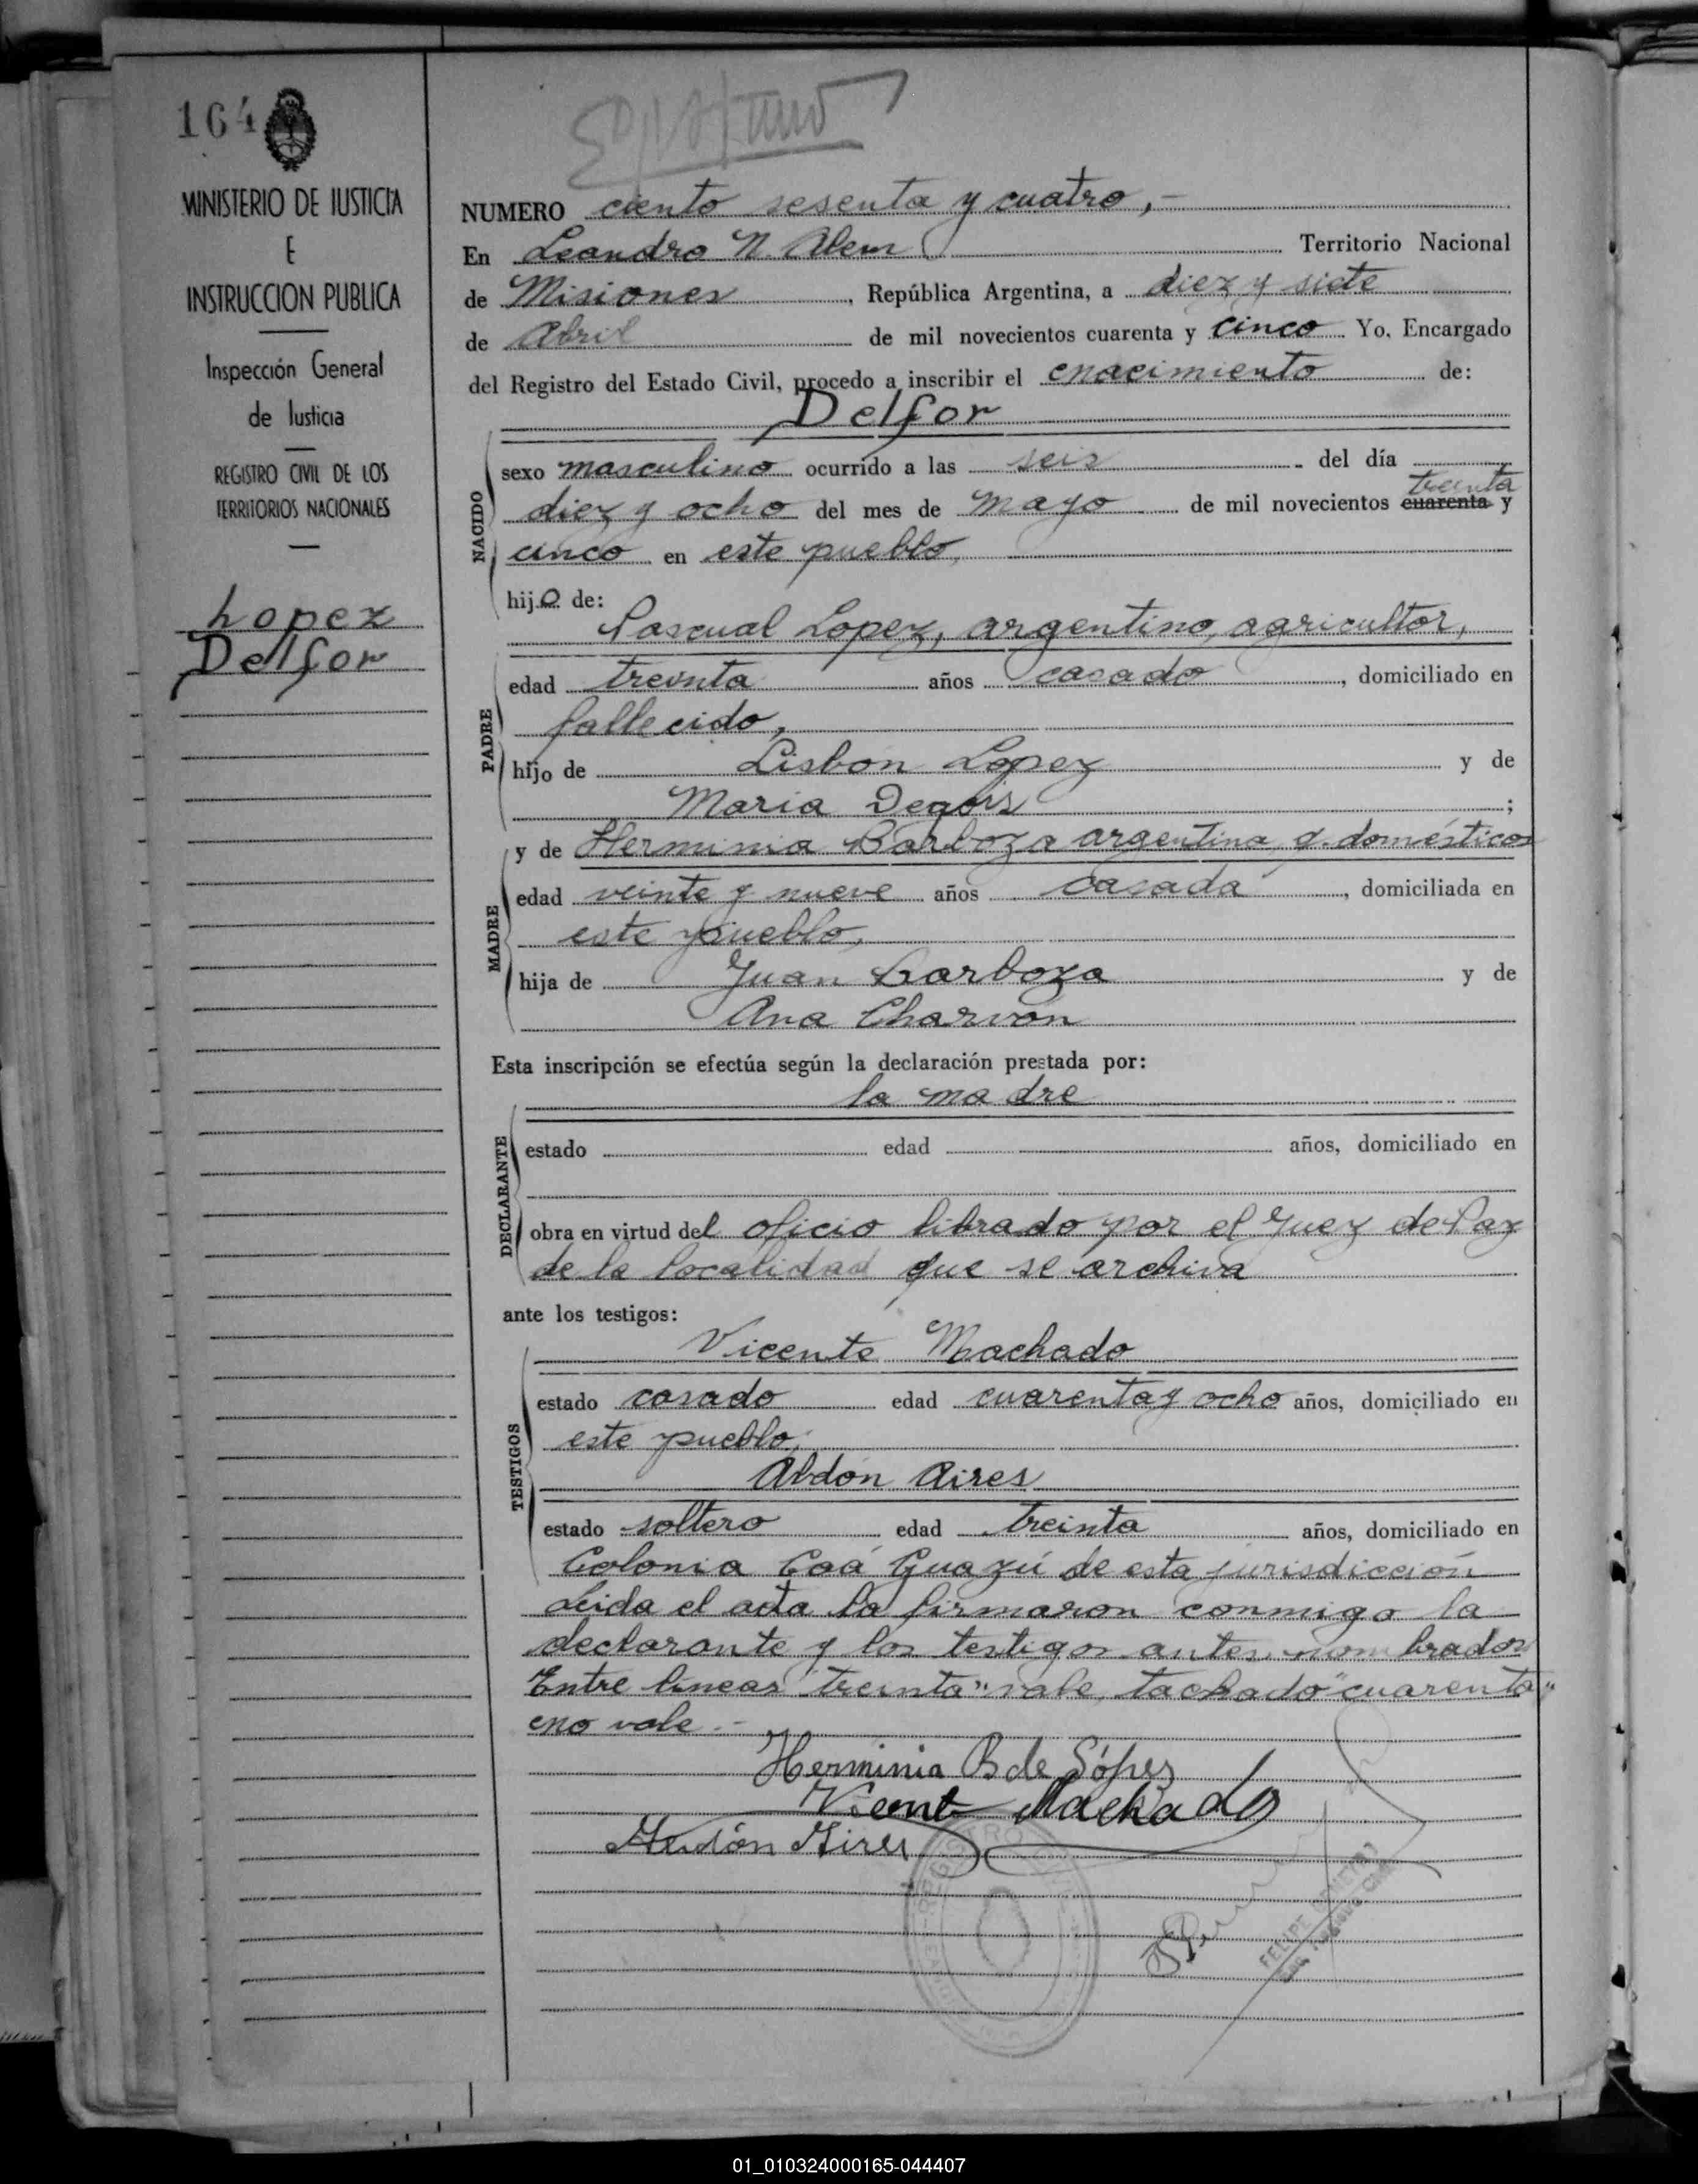 164
MINISTERIO DE JUSTICIA
E
INSTRUCCION PUBLICA
Inspección General
de Justicia
REGISTRO CIVIL DE LOS
TERRITORIOS NACIONALES
Lopez
Delfor
NUMERO ciento sesenta y cuatro,-
En Leandro N. Alem Territorio Nacional
de Misiones, República Argentina, a diez y siete
de Abril de mil novecientos cuarenta y cinco Yo, Encargado
del Registro del Estado Civil, procedo a inscribir el nacimiento de:
Delfor
NACIDO
sexo masculino ocurrido a las seis del día
treinta
diez y ocho del mes de Mayo de mil novecientos cuarenta y
cinco en este pueblo,
hijo de:
Pascual Lopez, argentino, agricultor,
PADRE
edad treinta años casado, domiciliado en
fallecido,
hijo de Lisbon Lopez y de
Maria Degois;
y de Herminia Barboza argentina, q. domésticos
MADRE
edad veinte y nueve años casada, domiciliada en
este pueblo,
hija de Juan Barboza y de
Ana Charvon
Esta inscripción se efectúa según la declaración prestada por:
la madre
DECLARANTE
estado edad años, domiciliado en
obra en virtud del oficio librado por el Juez de Paz
de la localidad que se archiva
ante los testigos:
Vicente Machado
TESTIGOS
estado casado edad cuarenta y ocho años, domiciliado en
este pueblo,
Abdón Aires
estado soltero edad treinta años, domiciliado en
Colonia Caá Guazú de esta jurisdicción
Leida el acta la firmaron conmigo la
declarante y los testigos antes nombrados
Entre lineas "treinta" vale, tachado "cuarenta"
no vale.-
Herminia B de López
Vicente Machado
Abdón Aires
REGISTRO
FELIPE
01_010324000165-044407